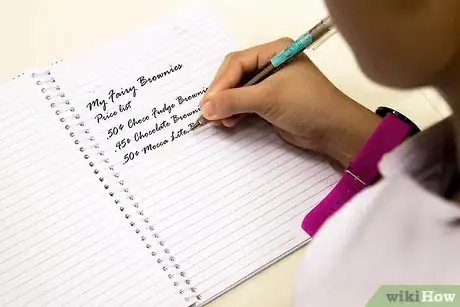 My Fairy Brownies
Price list
.50¢ Choco Fudge Brownie
.45¢ Chocolate Brownie
.50¢ Mocca Lite
wikiHow